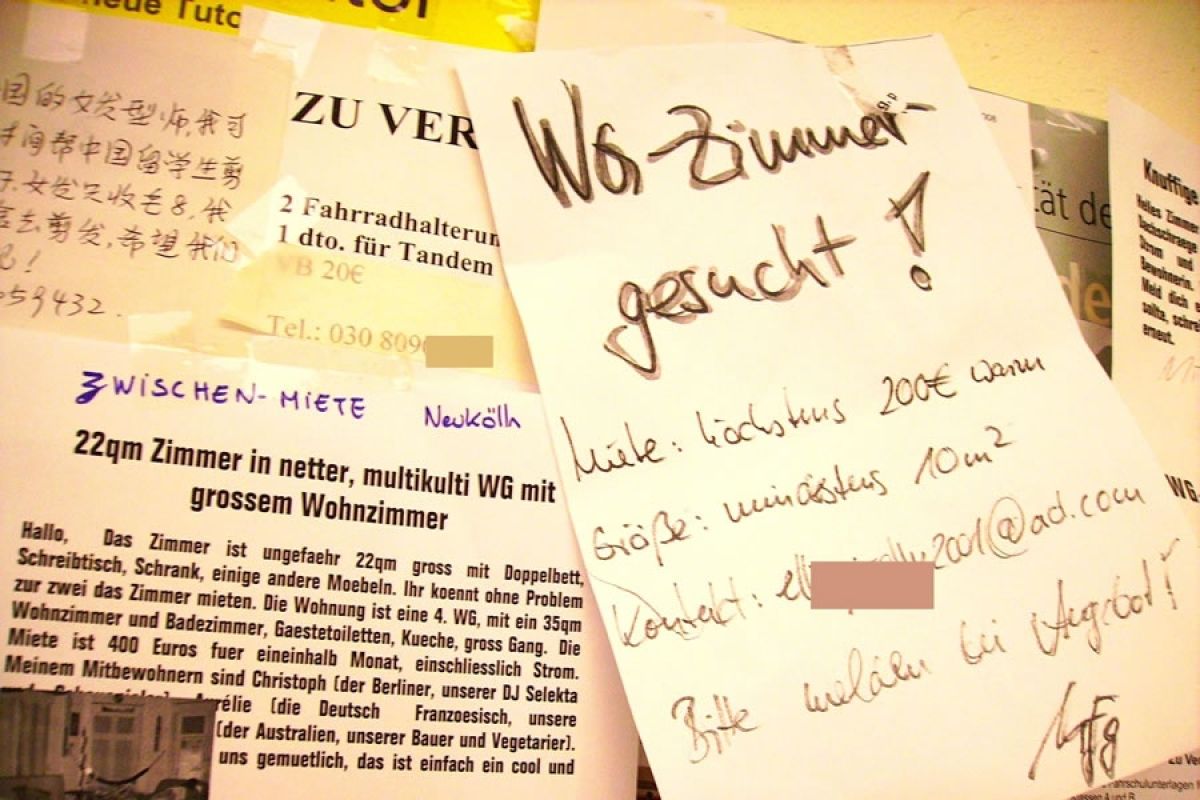 neue Tuto
国的女发型师,我可
时间帮中国留学生剪
女发只收毛8,我
去剪发,希望我们
吧!
059432.
ZU VER
2 Fahrradhalterun
1 dto. für Tandem
VB 20€
Tel.: 030 809
ZWISCHEN-MIETE Neukölln
22qm Zimmer in netter, multikulti WG mit
grossem Wohnzimmer
Hallo, Das Zimmer ist ungefaehr 22qm gross mit Doppelbett,
Schreibtisch, Schrank, einige andere Moebeln. Ihr koennt ohne Problem
zur zwei das Zimmer mieten. Die Wohnung ist eine 4. WG, mit ein 35qm
Wohnzimmer und Badezimmer, Gaestetoiletten, Kueche, gross Gang. Die
Miete ist 400 Euros fuer eineinhalb Monat, einschliesslich Strom.
Meinem Mitbewohnern sind Christoph (der Berliner, unserer DJ Selekta
rélie (die Deutsch Franzoesisch, unsere
(der Australien, unserer Bauer und Vegetarier).
uns gemuetlich, das ist einfach ein cool und
WG-Zimmer
gesucht!
Miete: höchstens 200€ warm
Größe: mindestens 10m²
Kontakt: 2001@aol.com
Bitte melden bei Angebot!
ät de
de
Knuffige
Helles Zimme
Dachschraege
Strom und
Bewohnerin.
Meld dich e
sollte, schrei
erneut.
WG
zu Ve
Fahrschulunterlagen
ssen A und B